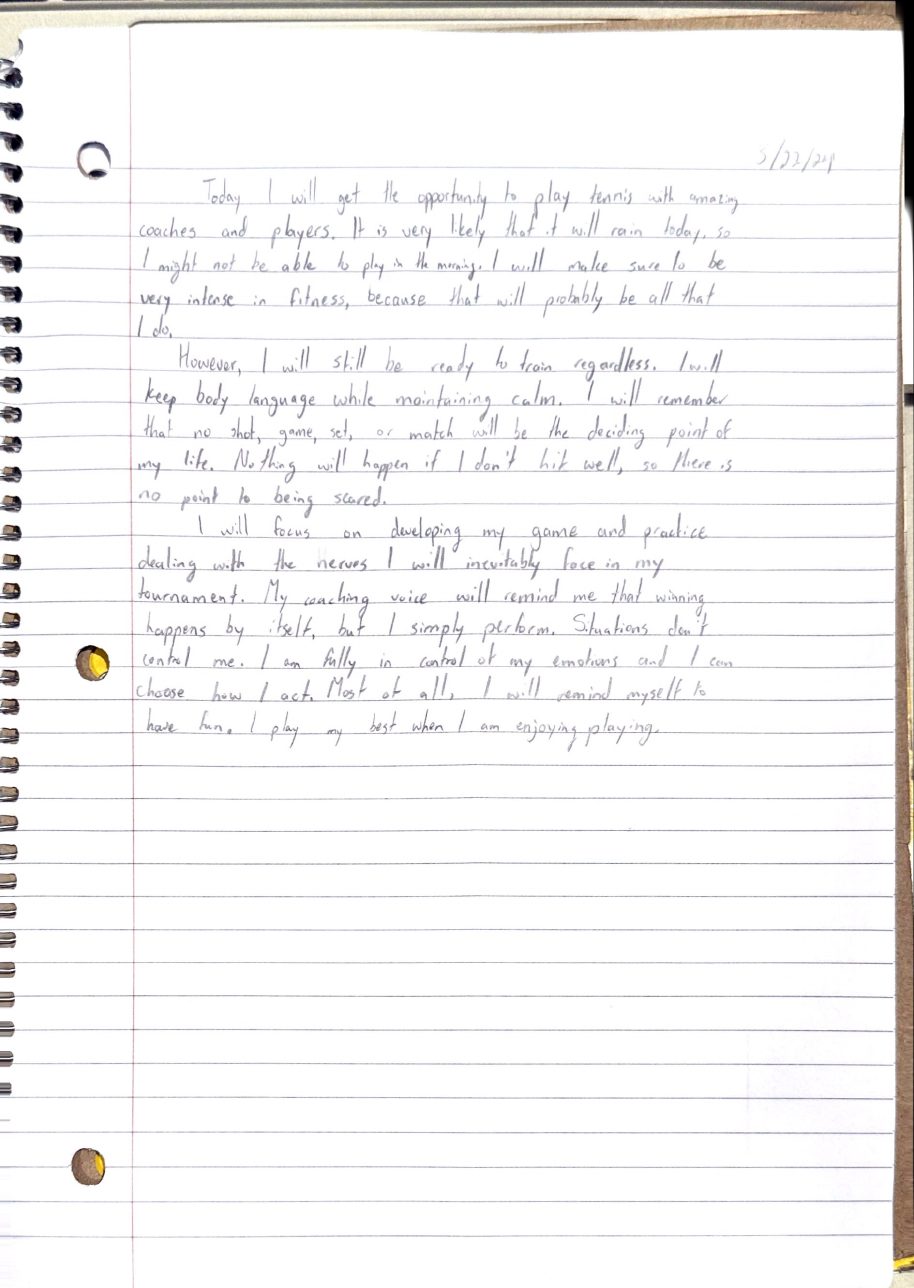 5/22/24
Today I will get the opportunity to play tennis with amazing
coaches and players. It is very likely that it will rain today, so
I might not be able to play in the morning. I will make sure to be
very intense in fitness, because that will probably be all that
I do.
However, I will still be ready to train regardless. I will
keep body language while maintaining calm. I will remember
that no shot, game, set, or match will be the deciding point of
my life. Nothing will happen if I don't hit well, so there is
no point to being scared.
I will focus on developing my game and practice
dealing with the nerves I will inevitably face in my
tournament. My coaching voice will remind me that winning
happens by itself, but I simply perform. Situations don't
control me. I am fully in control of my emotions and I can
choose how I act. Most of all, I will remind myself to
have fun. I play my best when I am enjoying playing.